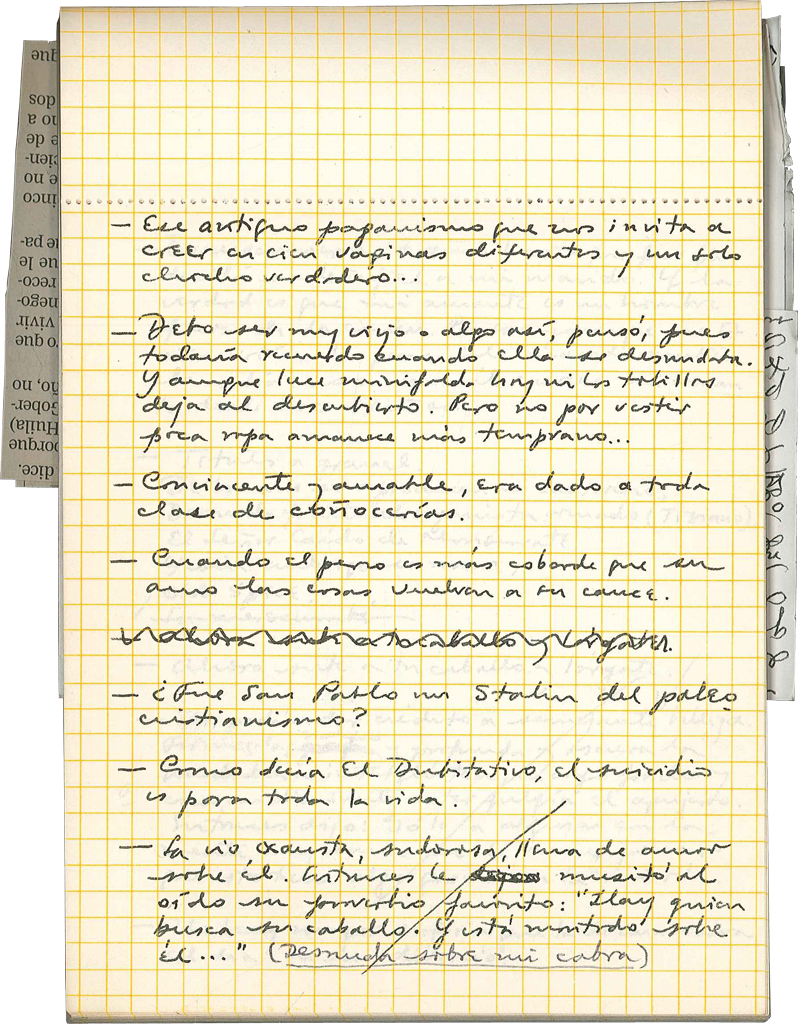 — Ese antiguo paganismo que nos invita a
creer en cien vaginas diferentes y un solo
chucho verdadero...
— Debo ser muy viejo o algo así, pensó, pues
todavía recuerdo cuando ella se desnudaba.
Y aunque luce minifalda hoy ni los tobillos
deja al descubierto. Pero no por vestir
poca ropa amanece más temprano...
— Convincente y amable, era dado a toda
clase de coñocerías.
— Cuando el perro es más cobarde que su
amo las cosas vuelven a su cauce.
caballo y lárgate.
— ¿Fue San Pablo un Stalin del paleo
cristianismo?
— Como decía El Dubitativo, el suicidio
es para toda la vida.
— La vio exausta, sudorosa, llena de amor
sobre él. Entonces le musitó al
oído su proverbio favorito: "Hay quien
busca su caballo. Y está montado sobre
él..." (Desnuda sobre mi cabra)
que
dos
no a
e de
cien-
e no
inco
pa-
ue le
reco-
nego-
vivir
o que
ño, no
Gober-
(Huila)
porque
dice.